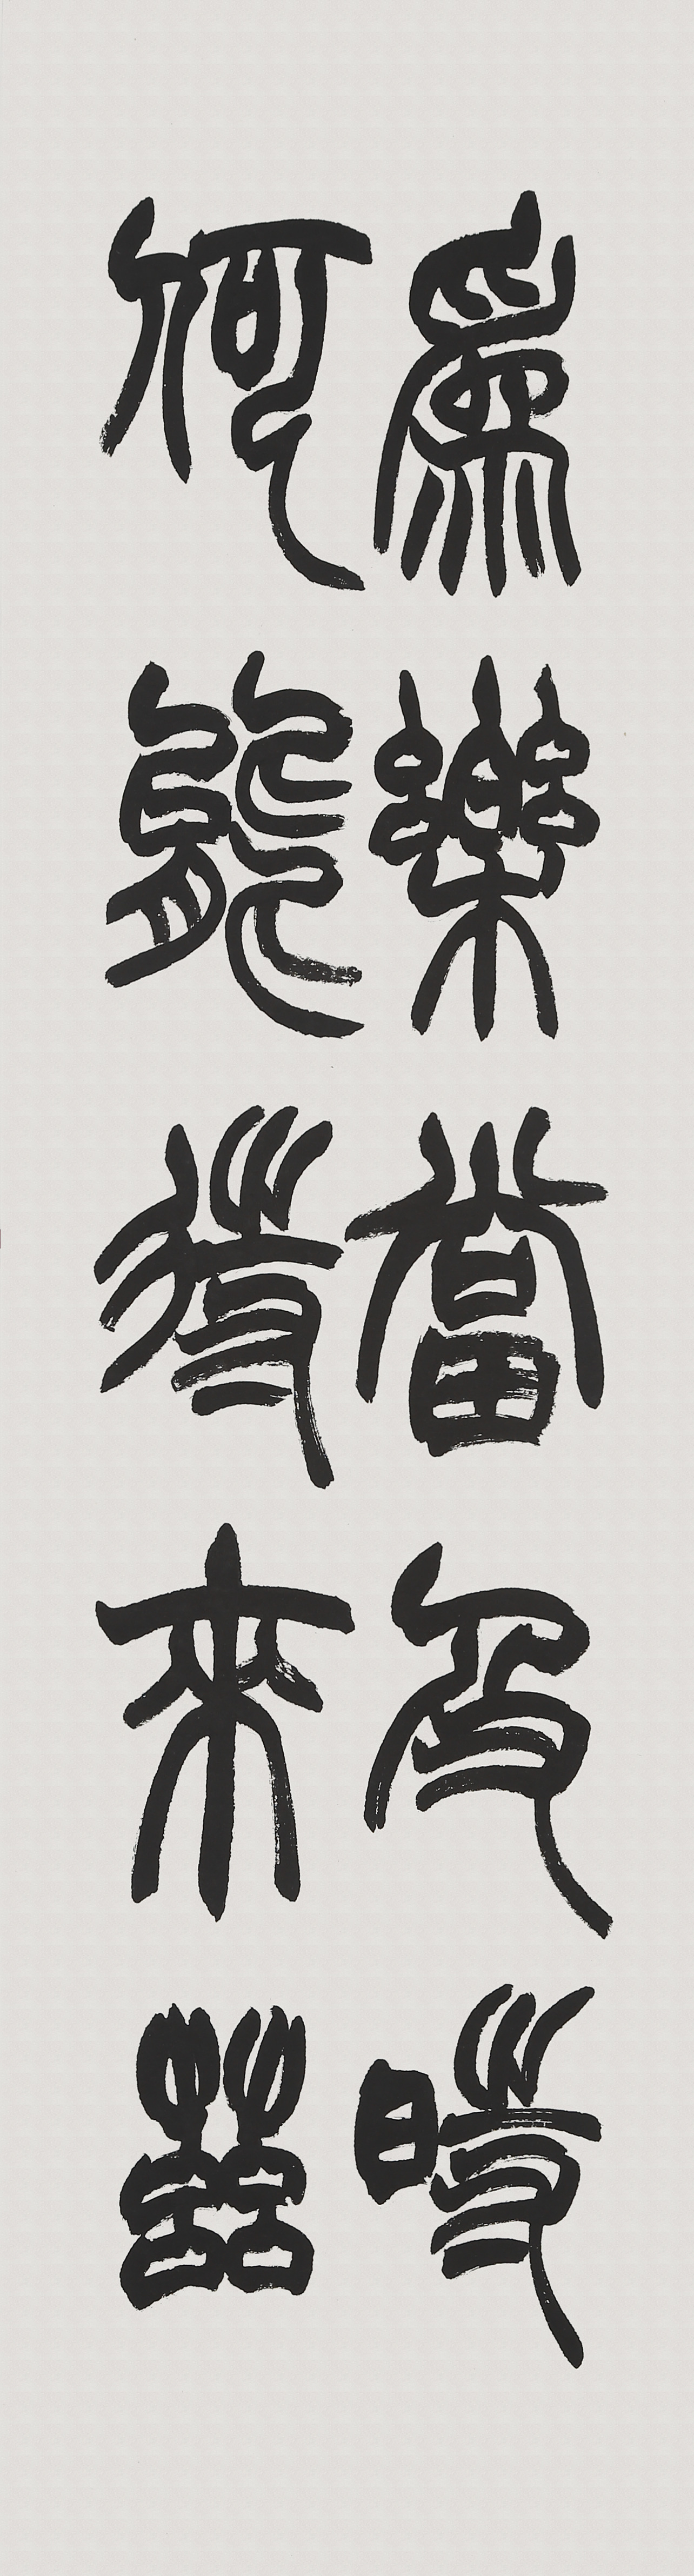 爲樂當及時
何能待來茲